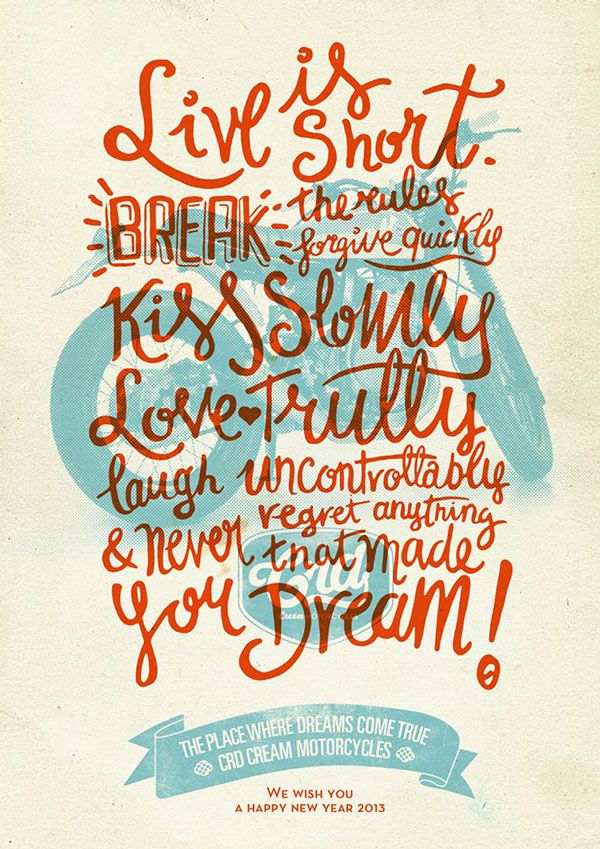 Live is Short.
BREAK the rules
forgive quickly
Kiss Slowly
Love Trully
laugh uncontrollably
& never regret anything
that made
you Dream!
Crd.
Cream MOTORCYCLES
THE PLACE WHERE DREAMS COME TRUE
CRD CREAM MOTORCYCLES
WE WISH YOU
A HAPPY NEW YEAR 2013